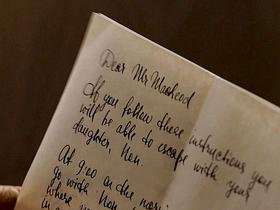 Dear Mr
If you follow these instructions you
will be able to escape with your
daughter, Non.
At 9:00 in the
go with Non
where
in a